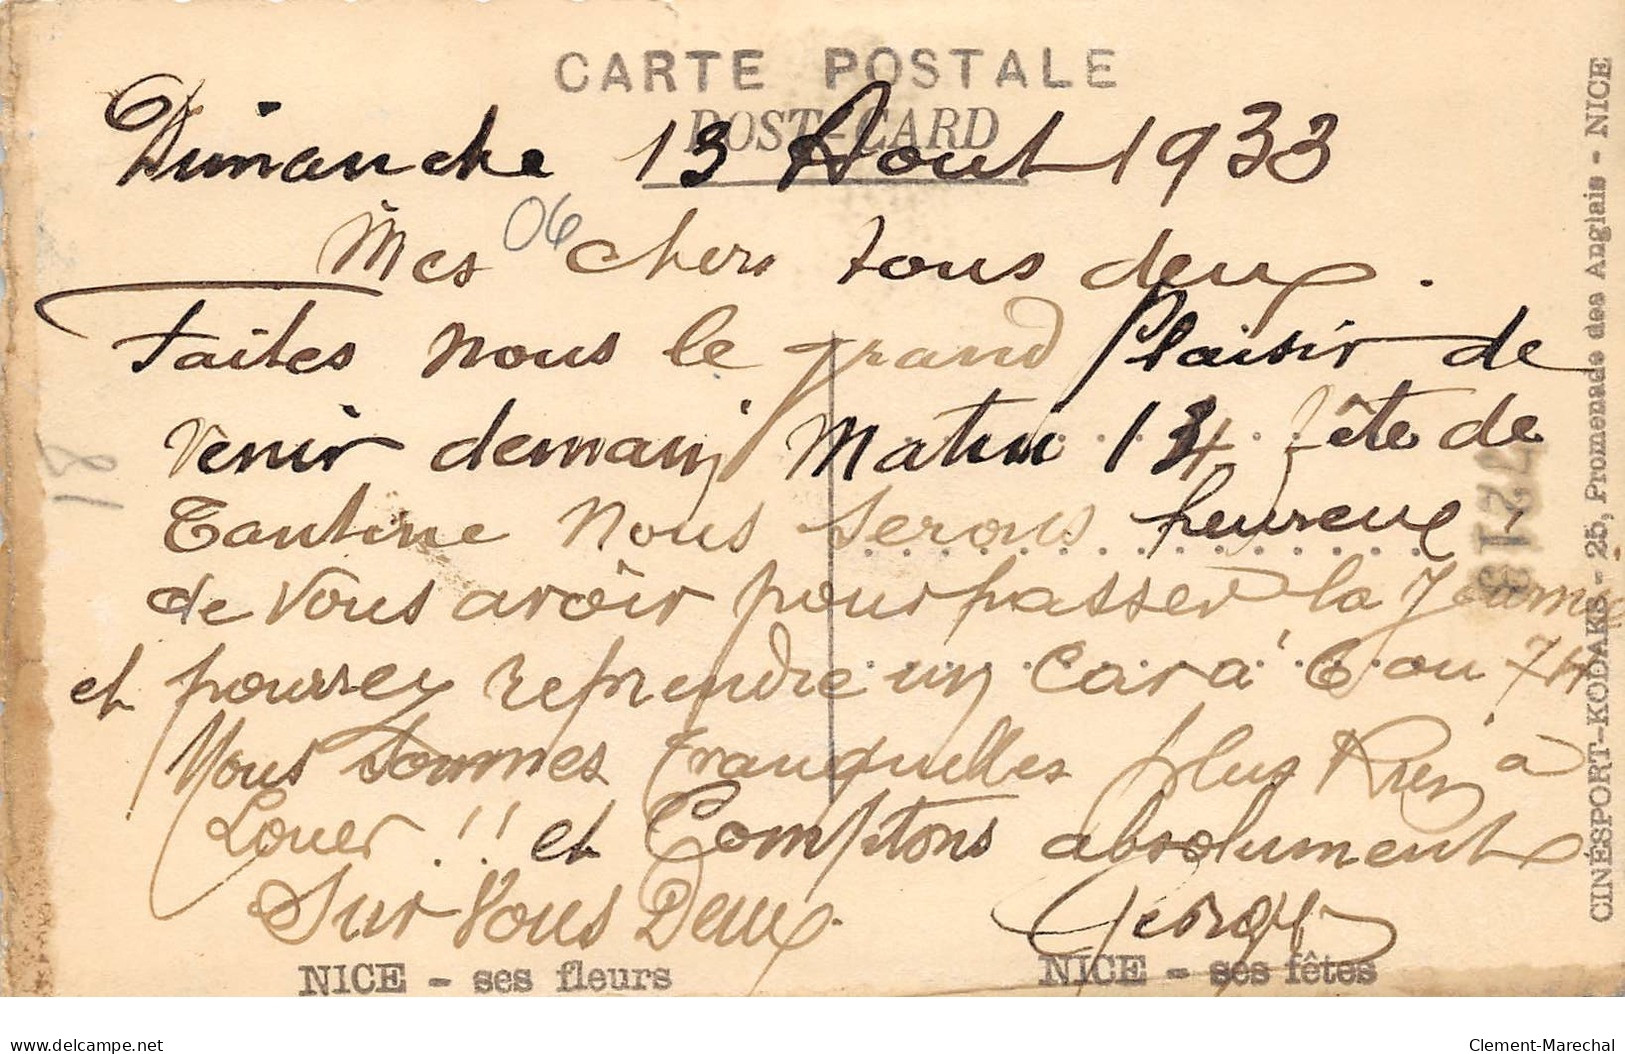 CARTE POSTALE
POST-CARD
Dimanche 13 Aout 1933
06
Mes chers tous deux.
Faites nous le grand Plaisir de
venir demain Matin 14 fête de
Tantine Nous serons heureux
de vous avoir pour passer la Journée
et pourrez reprendre un Car à 6 ou 7H
Nous sommes tranquilles plus Rien à
Louer !! et Comptons absolument
Sur Vous Deux.
NICE - ses fleurs
NICE - ses fêtes
18
CINÉSPORT-KODAKS - 25, Promenade des Anglais - NICE
delcampe.net
Clement-Marechal